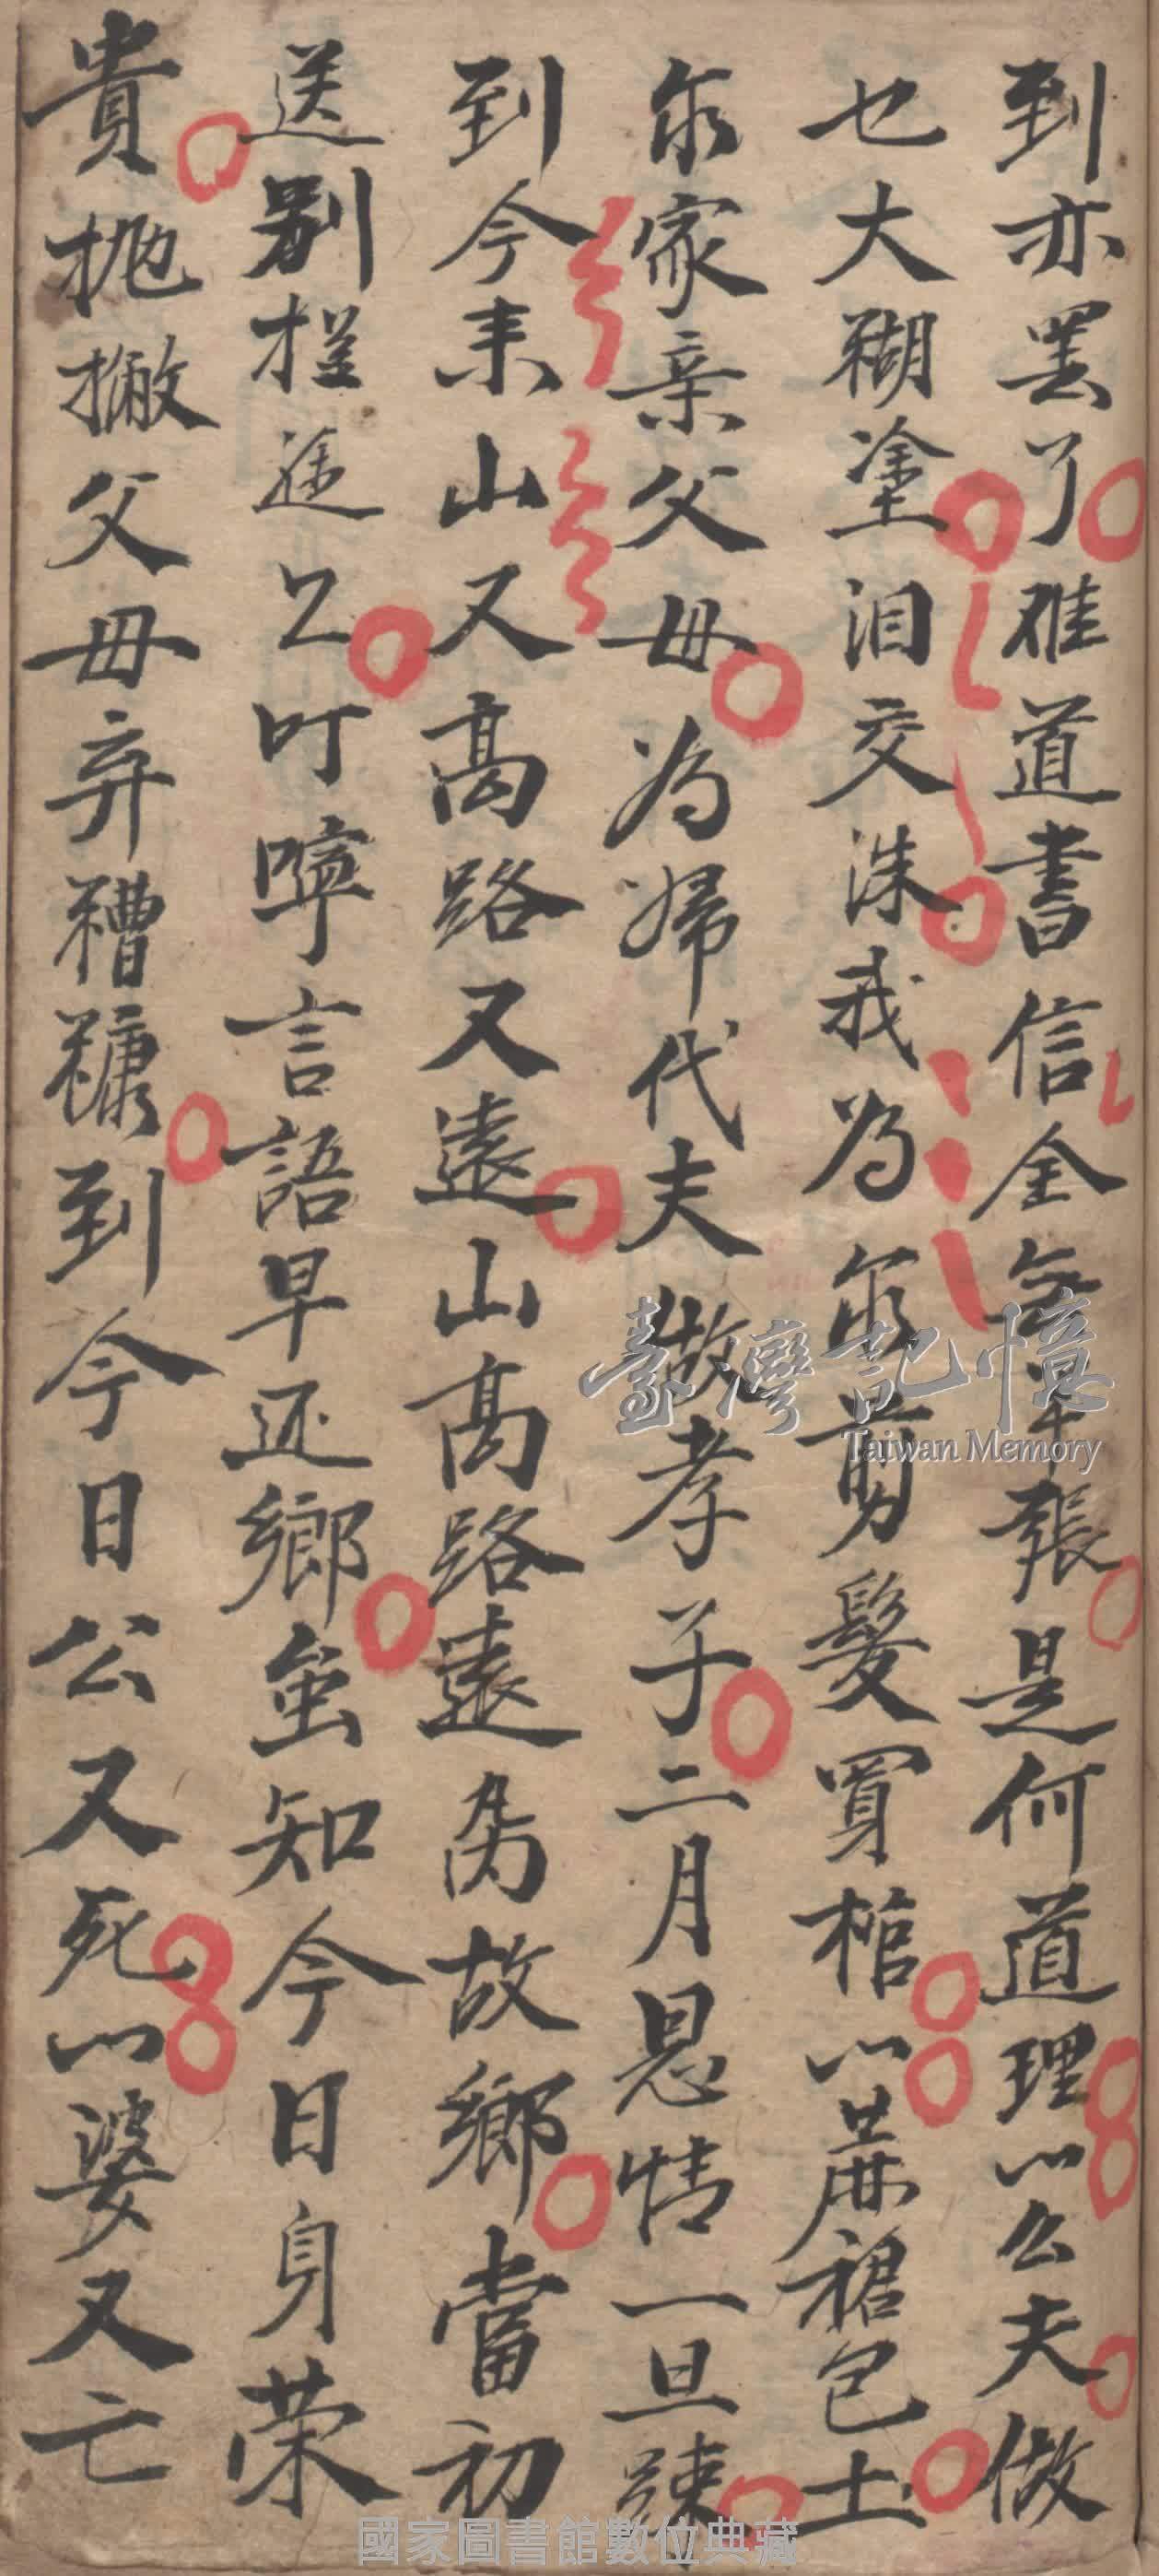 到亦罢了难道書信全無半張是何道理〻么夫做
也大糊塗泪交洙我为尔剪髮買棺〻蔴裙包土
尔家亲父毋为婦代夫做孝子二月恩情一旦疎
到今来山又高路又遠山高路遠离故鄉當初
送别长途公叮嚀言語早还鄉虽知今日身荣
貴抛撇父毋弃糟糠到今日公又死〻婆又亡
臺灣記憶
Taiwan Memory
國家圖書館數位典藏